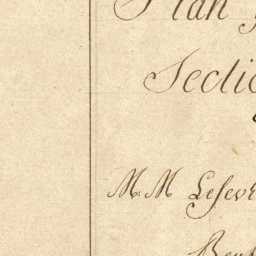 Plan
Sectio
M.M Lefevr